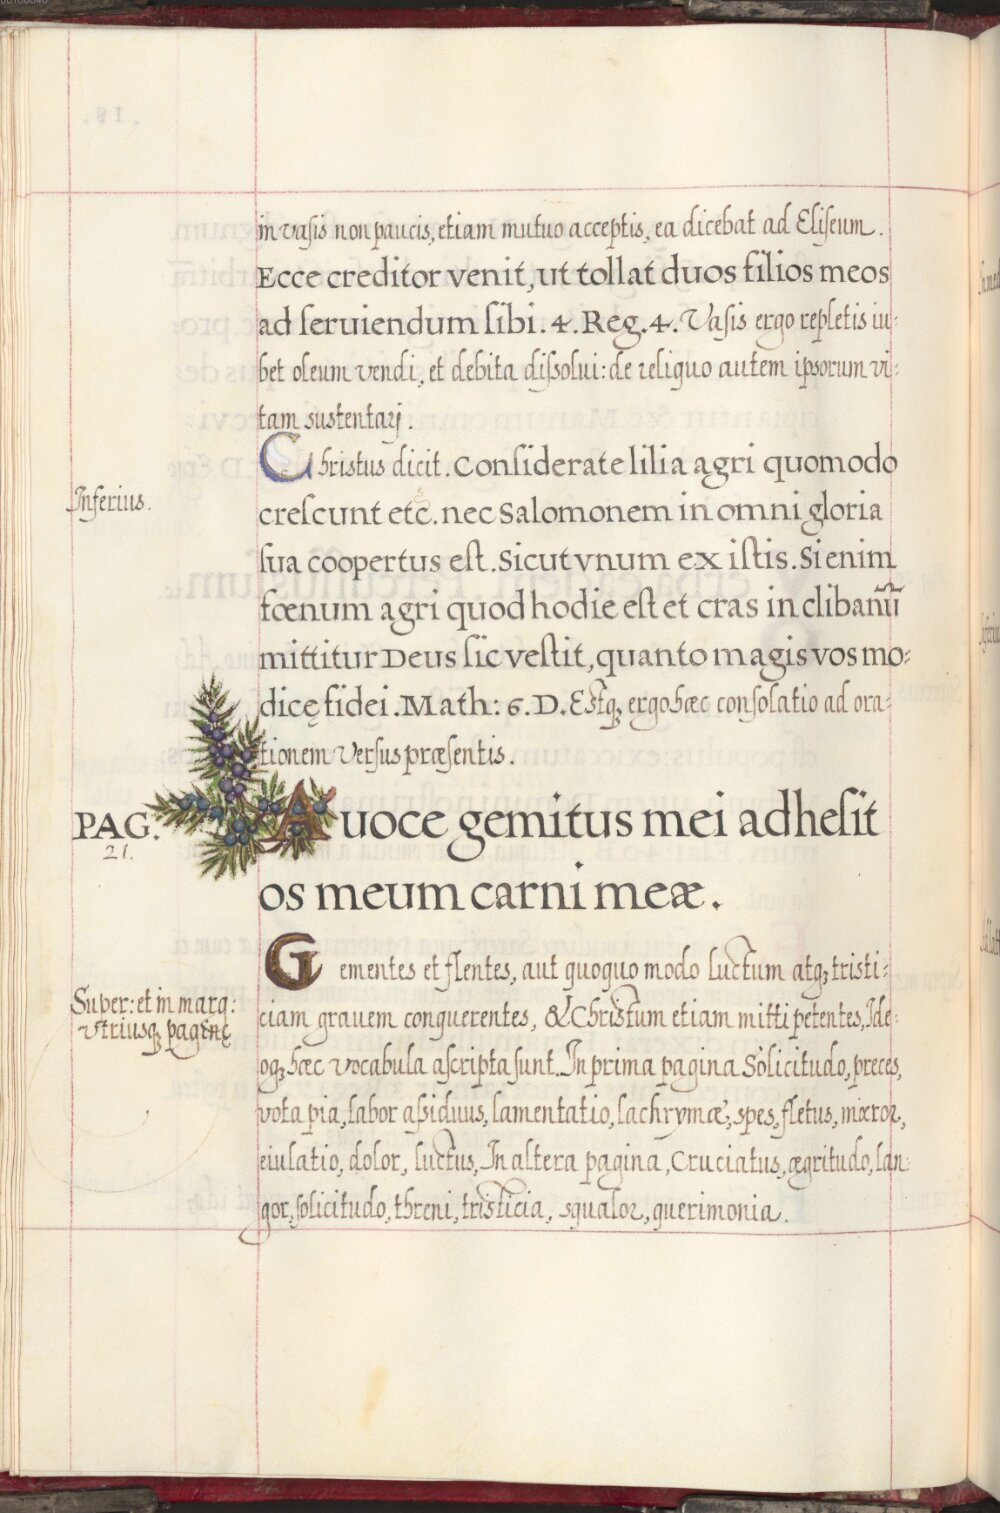 in vasis non paucis, etiam mutuo acceptis, ea dicebat ad Eliseum.
Ecce creditor venit, ut tollat duos filios meos
ad seruiendum sibi. 4. Reg. 4. Vasis ergo repletis iu-
bet oleum vendi, et debita dissolui: de reliquo autem ipsorum vi-
tam sustentarj.
Christus dicit. Considerate lilia agri quomodo
Inferius.
crescunt etc. nec Salomonem in omni gloria
sua coopertus est. Sicut vnum ex istis. Si enim
fœnum agri quod hodie est et cras in clibanũ
mittitur Deus sic vestit, quanto magis vos mo-
dicę fidei. Math: 6. D. Estq; ergo hæc consolatio ad ora-
tionem versus præsentis.
PAG. 21.
A uoce gemitus mei adhesit
os meum carni meæ.
Gementes et flentes, aut quoquo modo luctum atq; tristi-
Super: et in marg:
vtriusq; paginę
ciam grauem conquerentes, & Christum etiam mitti petentes, Ide-
oq; hæc vocabula ascripta sunt. In prima pagina Solicitudo, preces,
vota pia, labor assiduus, lamentatio, lachrymæ, spes, fletus, mæror,
eiulatio, dolor, luctus, In altera pagina, Cruciatus, ægritudo, lan-
gor, solicitudo, threni, tristicia, squalor, querimonia.